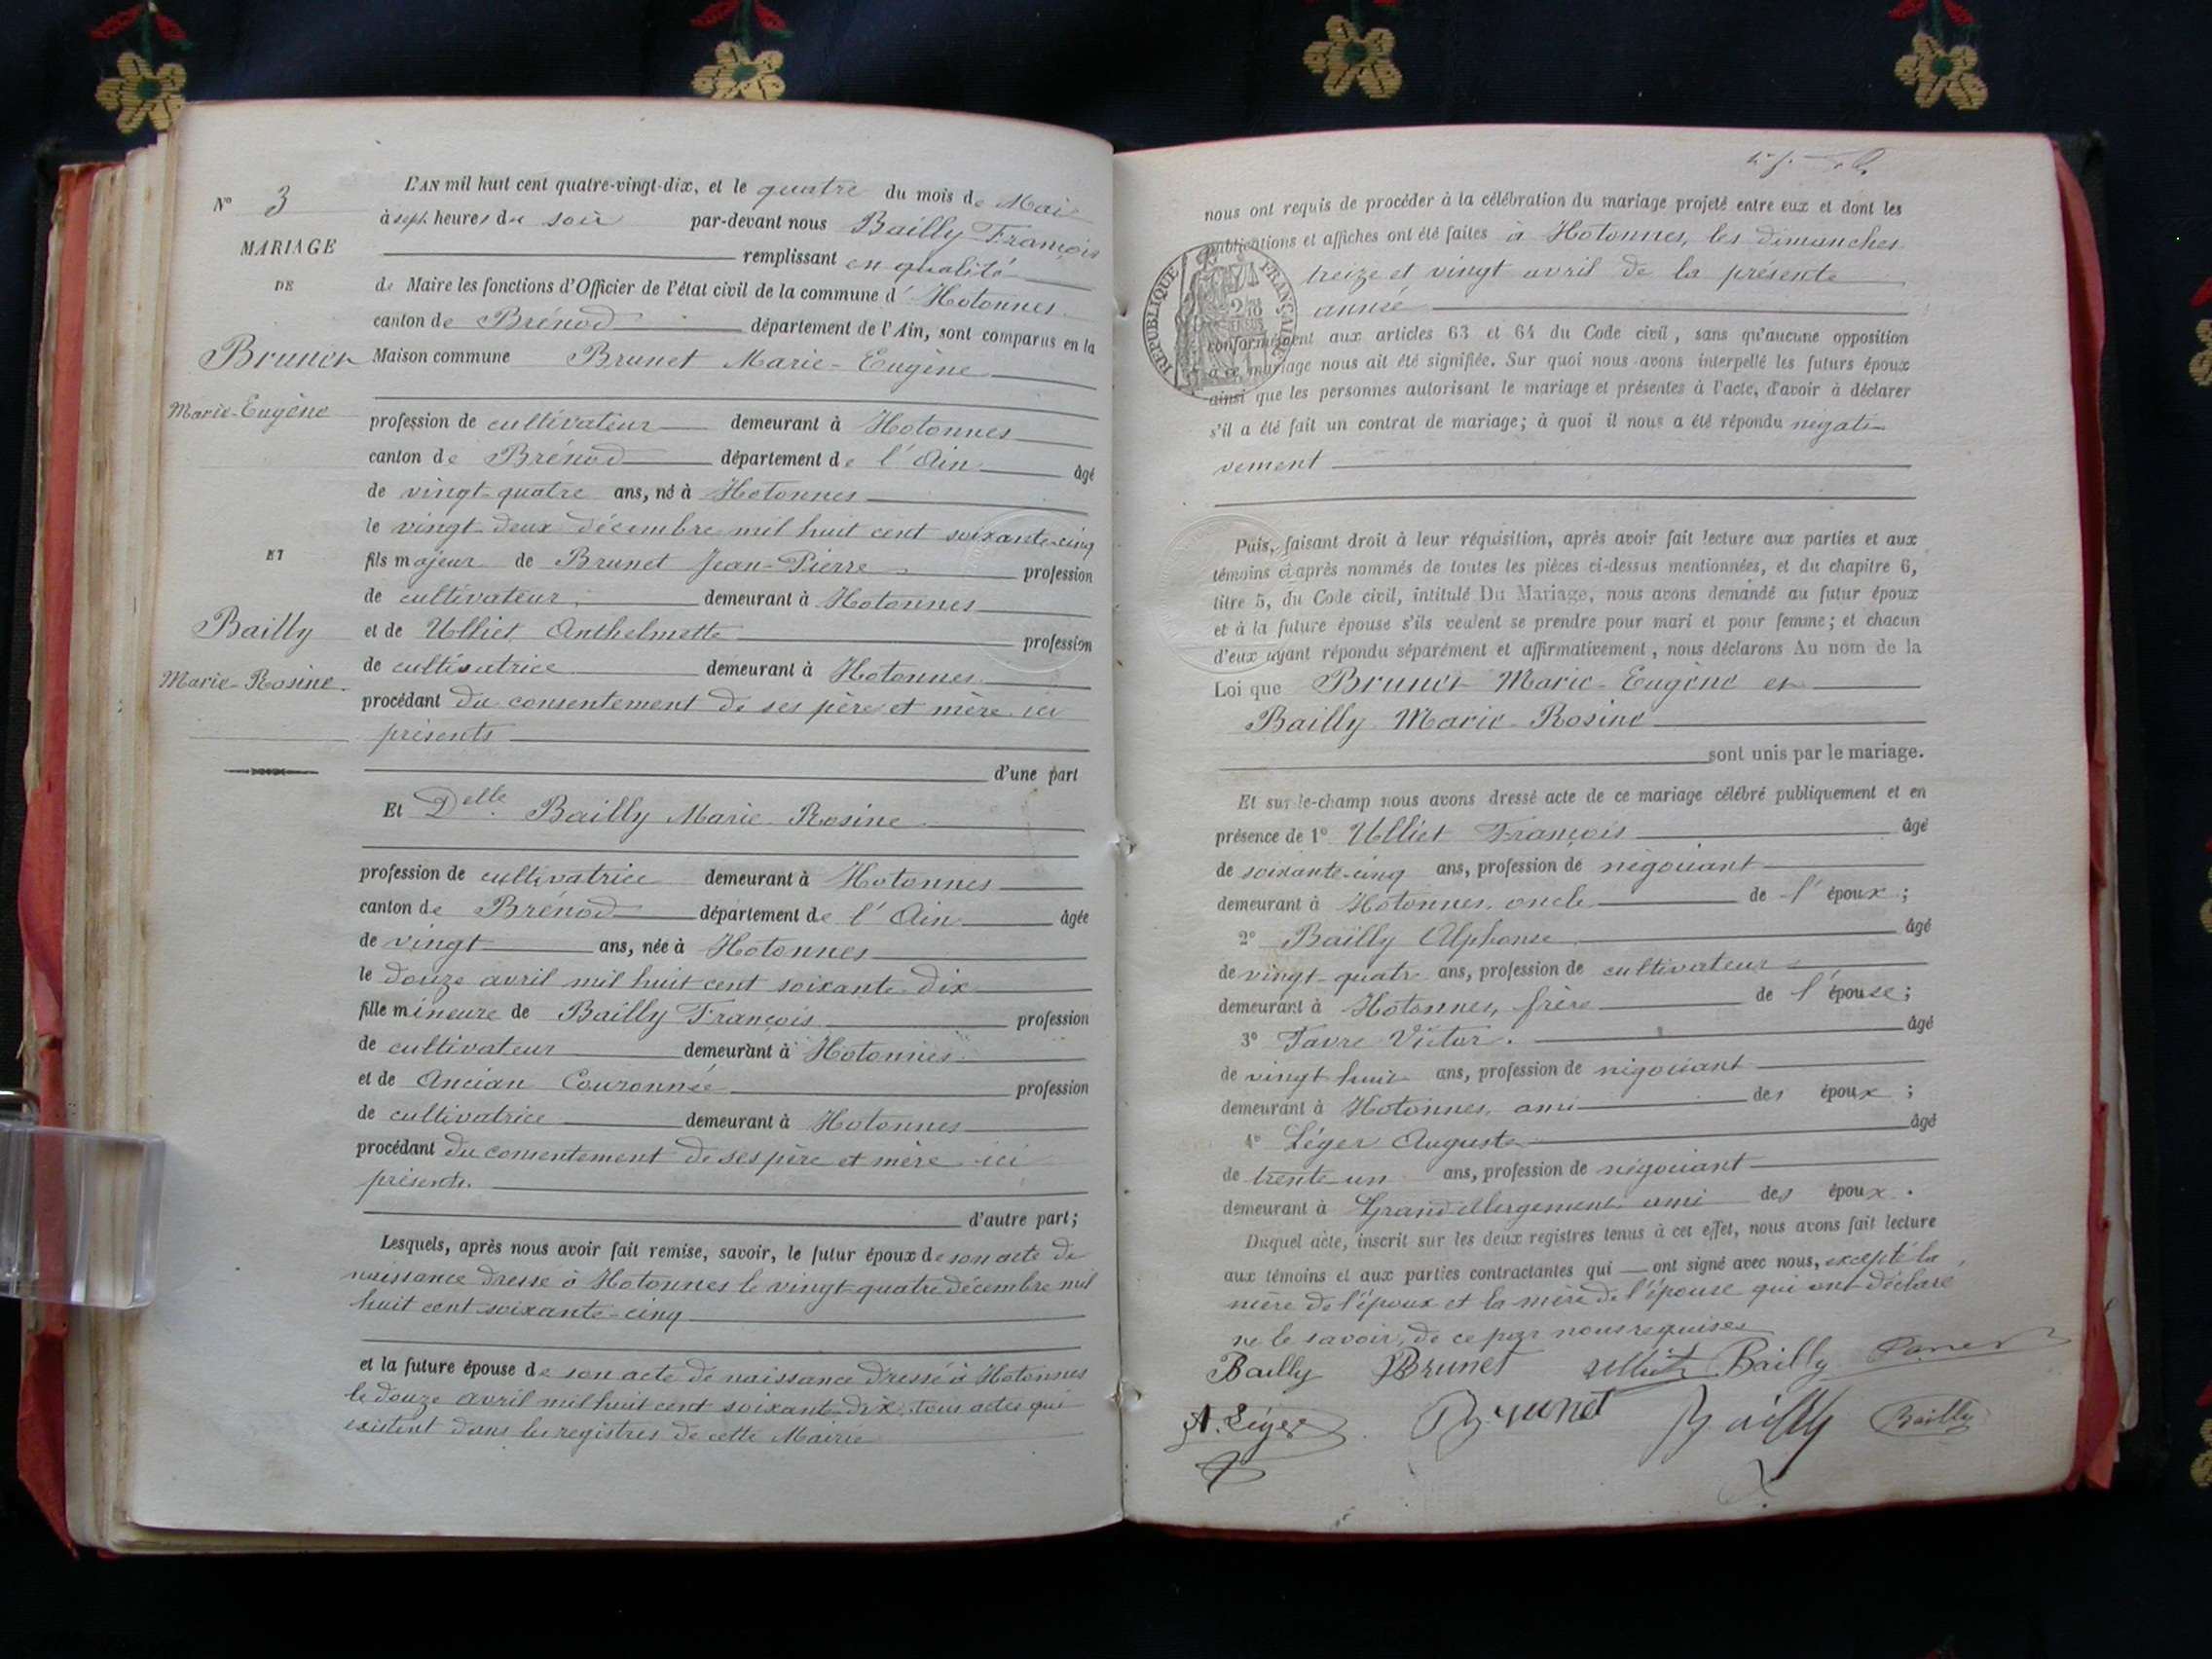 N° 3
MARIAGE
DE
Brunet
Marie-Eugène
ET
Bailly
Marie-Rosine
L'AN mil huit cent quatre-vingt-dix, et le quatre du mois de Mai
à sept heures du soir par-devant nous Bailly François
remplissant en qualité
de Maire les fonctions d'Officier de l'état civil de la commune d' Hotonnes
canton de Brénod département de l'Ain, sont comparus en la
Maison commune Brunet Marie-Eugène
profession de cultivateur demeurant à Hotonnes
canton de Brénod département de l'Ain âgé
de vingt-quatre ans, né à Hotonnes
le vingt-deux décembre mil huit cent soixante-cinq
fils majeur de Brunet Jean-Pierre profession
de cultivateur demeurant à Hotonnes
et de Ulliet Anthelmette profession
de cultivatrice demeurant à Hotonnes
procédant du consentement de ses père et mère ici
présents
d'une part
Et Delle Bailly Marie-Rosine
profession de cultivatrice demeurant à Hotonnes
canton de Brénod département de l'Ain âgée
de vingt ans, née à Hotonnes
le douze avril mil huit cent soixante-dix
fille mineure de Bailly François profession
de cultivateur demeurant à Hotonnes
et de Ancian Couronnée profession
de cultivatrice demeurant à Hotonnes
procédant du consentement de ses père et mère ici
présents.
d'autre part;
Lesquels, après nous avoir fait remise, savoir, le futur époux de son acte de
naissance dressé à Hotonnes le vingt-quatre décembre mil
huit cent soixante-cinq
et la future épouse de son acte de naissance dressé à Hotonnes
le douze avril mil huit cent soixante-dix, tous actes qui
existent dans les registres de cette Mairie
nous ont requis de procéder à la célébration du mariage projeté entre eux et dont les
publications et affiches ont été faites à Hotonnes, les dimanches
treize et vingt avril de la présente
année
RÉPUBLIQUE FRANÇAISE
conformément aux articles 63 et 64 du Code civil, sans qu'aucune opposition
à ce mariage nous ait été signifiée. Sur quoi nous avons interpellé les futurs époux
ainsi que les personnes autorisant le mariage et présentes à l'acte, d'avoir à déclarer
s'il a été fait un contrat de mariage; à quoi il nous a été répondu négati-
vement
Puis, faisant droit à leur réquisition, après avoir fait lecture aux parties et aux
témoins ci-après nommés de toutes les pièces ci-dessus mentionnées, et du chapitre 6,
titre 5, du Code civil, intitulé Du Mariage, nous avons demandé au futur époux
et à la future épouse s'ils veulent se prendre pour mari et pour femme; et chacun
d'eux ayant répondu séparément et affirmativement, nous déclarons Au nom de la
Loi que Brunet Marie-Eugène et
Bailly Marie-Rosine
sont unis par le mariage.
Et sur-le-champ nous avons dressé acte de ce mariage célébré publiquement et en
présence de 1° Ulliet François âgé
de soixante-cinq ans, profession de négociant
demeurant à Hotonnes, oncle de l'époux;
2° Bailly Alphonse âgé
de vingt-quatre ans, profession de cultivateur
demeurant à Hotonnes, frère de l'épouse;
3° Favre Victor. âgé
de vingt huit ans, profession de négociant
demeurant à Hotonnes, ami des époux;
4° Léger Auguste âgé
de trente-un ans, profession de négociant
demeurant à Grand Abergement ami des époux.
Duquel acte, inscrit sur les deux registres tenus à cet effet, nous avons fait lecture
aux témoins et aux parties contractantes qui ont signé avec nous, excepté la
mère de l'époux et la mère de l'épouse qui ont déclaré
ne le savoir, de ce par nous requises
Bailly Brunet Ulliet Bailly Favre
A. Léger Brunet Bailly Bailly